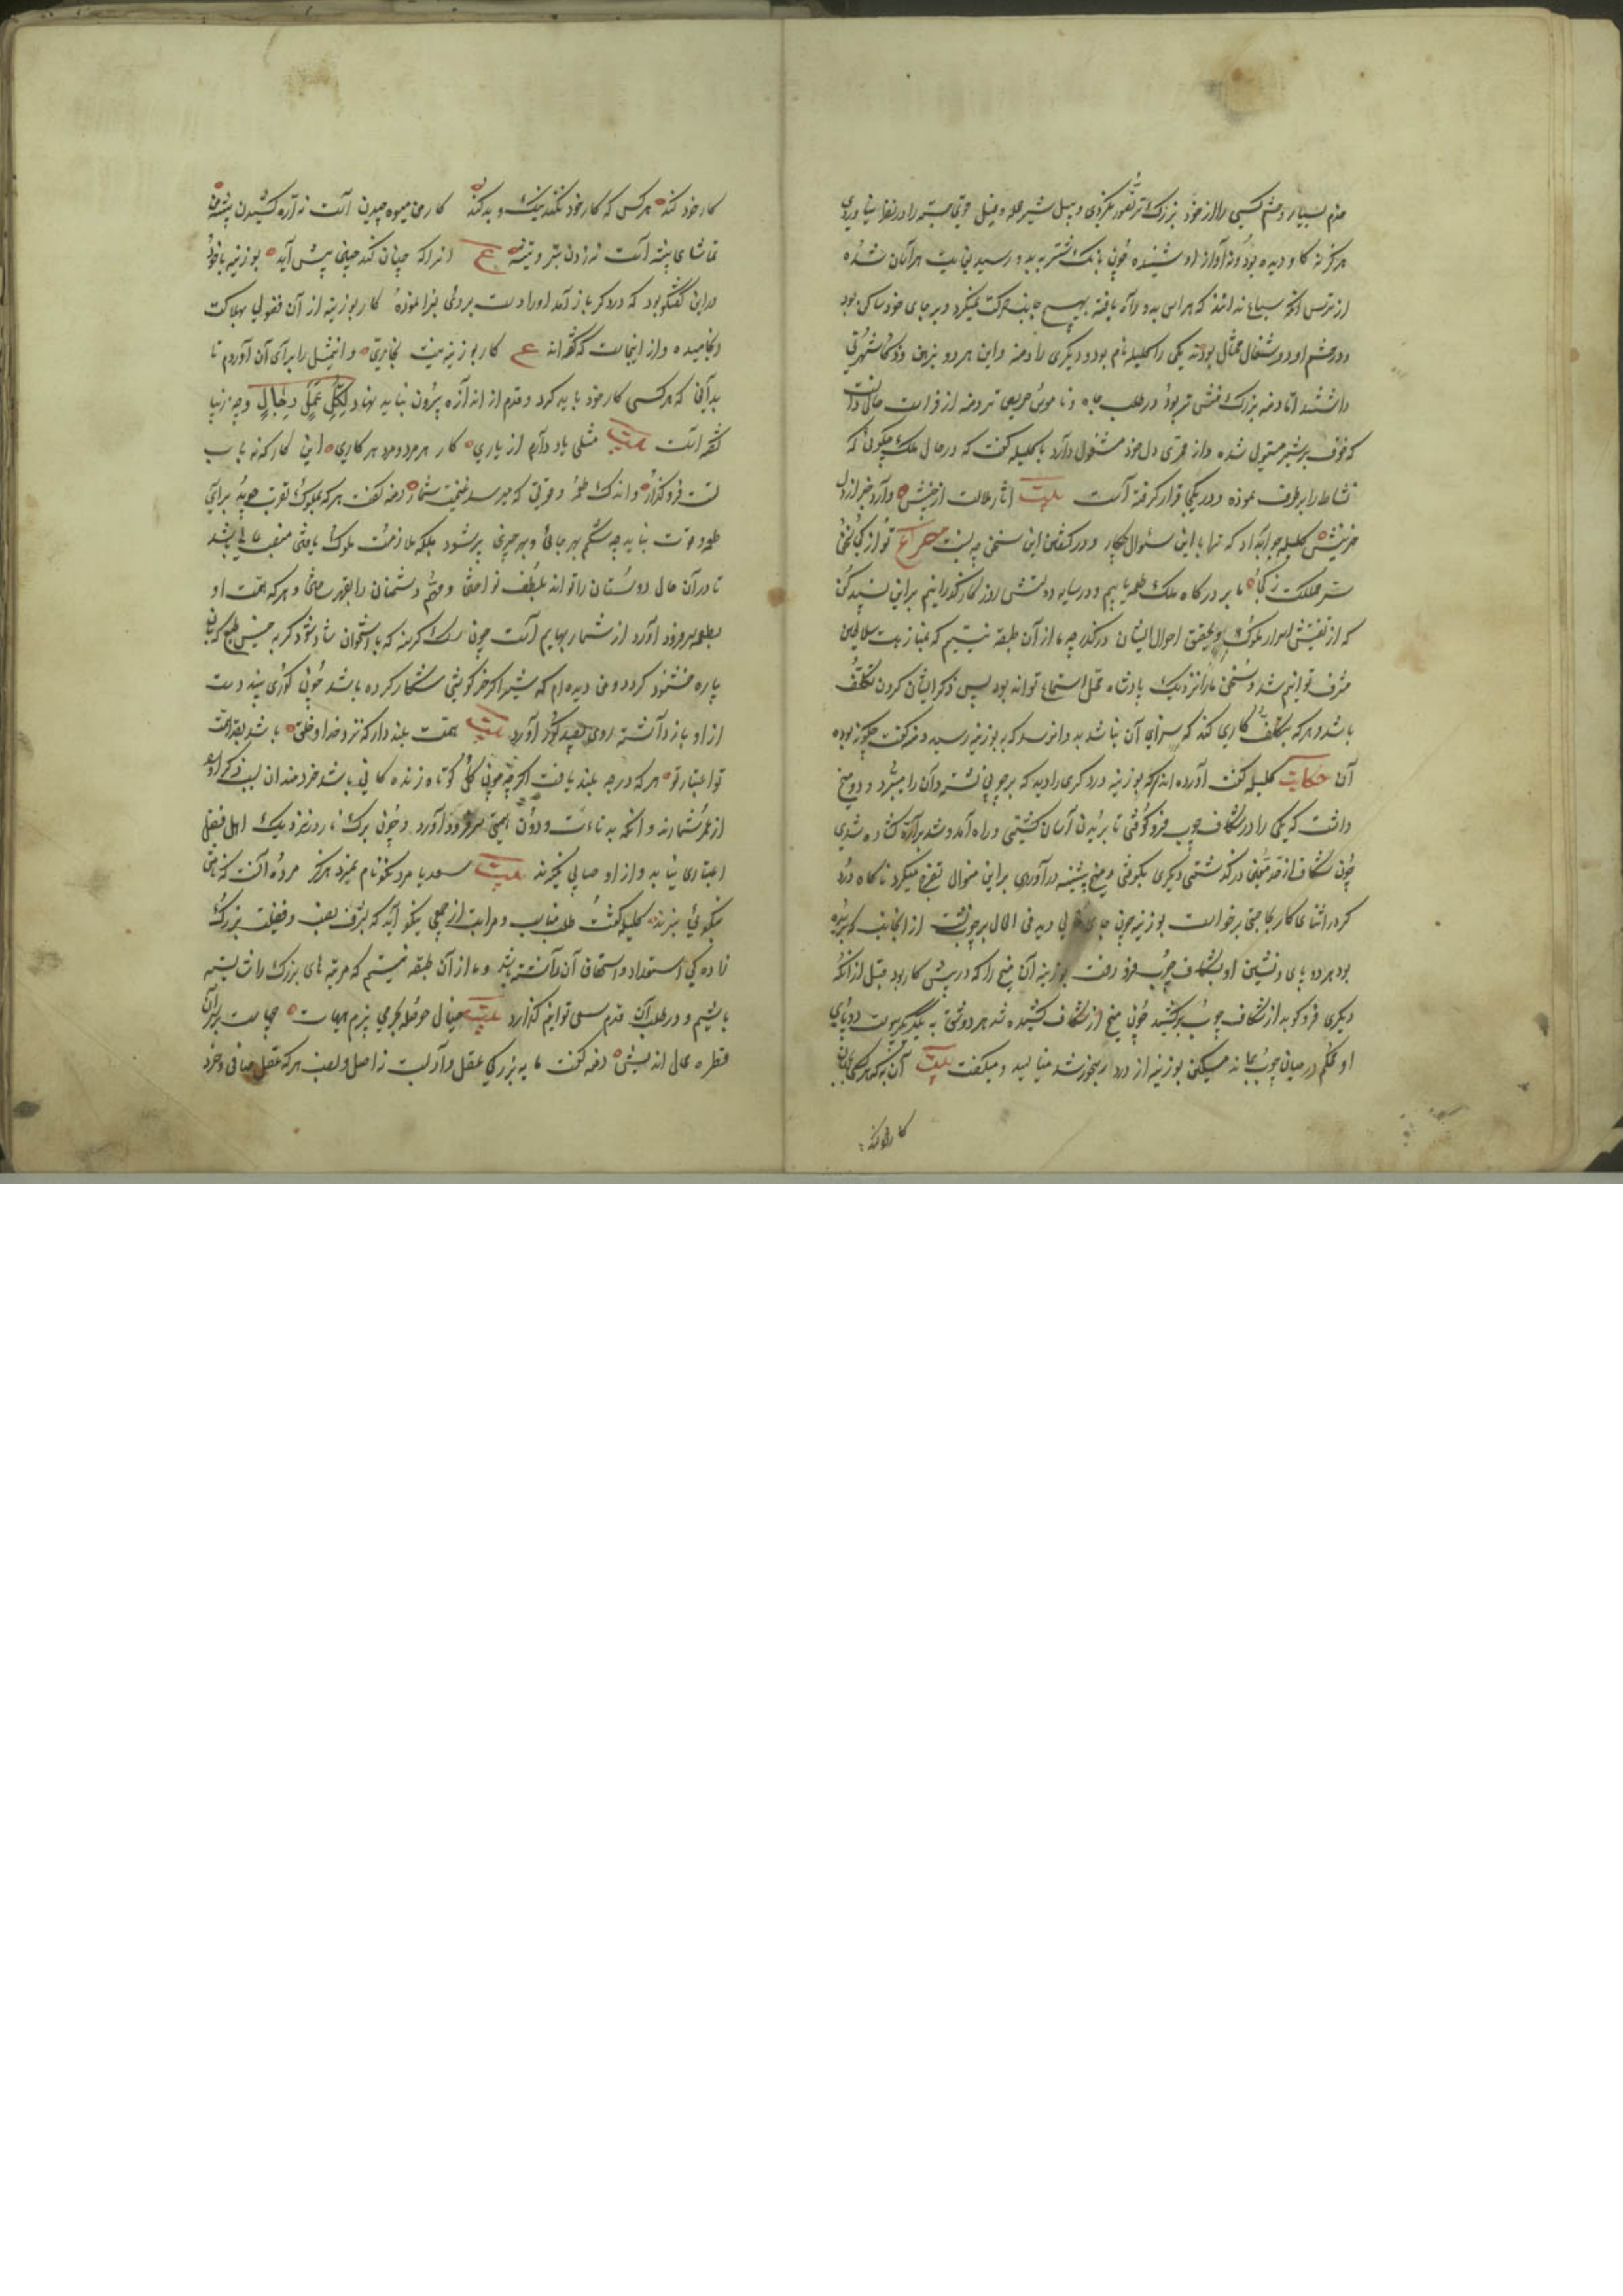 خدم بسیار و حشم کسی را از خود بزرگتر تصور نکردی و ببیل شیر حمله و فیل قوی جثه را در نظر نیاوردی
هرگز نه گاو دیده بود و نه آواز او شنیده چون بانگ شنزبه بدو رسید بغایت هراسان شده
از ترس آنکه سباع ندانند که هراس بدو راه یافته بهیچ جانب حرکت نمیکرد و بر جای خود ساکن بود
و در حشم او دو شغال محتال بودند یکی را کلیله نام بود و دیگری را دمنه و این هر دو بذهن و ذکا شهرتی
داشتند اما دمنه بزرگ منش تر بود و در طلب جاه و ناموس حریص تر دمنه از فراست حال دانست
که خوف بر شیر مستولی شده و از ممری دل خود مشغول دارد با کلیله گفت که در حال ملک چگوئی که
نشاط را برطرف نموده و در یکجا قرار گرفته است بیت آثار ملالت از جبینش وآرد خبر از دل
حزینش کلیله جواب داد که ترا با این سئوال چکار و در گفتن این سخن چه نسبت مصراع تو از کجا سخن
سر مملکت ز کجا ما بر درگاه ملک طعمه یابیم و در سایه دولتش روزگار گذرانیم برین بسنده کن
که از تفتیش اسرار ملوک و تحقیق احوال ایشان درگذر چه ما از آن طبقه نیستیم که بمنازمت سلاطین
مشرف توانیم شد و سخن ما را نزدیک پادشاه محل استماع تواند بود پس ذکر ایشان کردن تکلف
باشد و هر که بتکلف کاری کند که سزای آن نباشد بدو آن رسد که به بوزینه رسید دمنه گفت چگونه بوده
آن حکایت کلیله گفت آورده اند که بوزینه درودگری را دید که بر چوبی نشسته و آن را میبرد و دو میخ
داشت که یکی را در شکاف چوب فرو کوفتی تا بریدن آسان گشتی و راه آمد و شد بر اره گشاده شدی
چون شکاف از حد معین درگذشتی دیگری بکوفتی و میخ پیشینه برآوردی برین منوال تفرج میکرد ناگاه درود
گر در اثنای کار بحاجتی برخواست بوزینه چون جای خالی دید فی الحال بر چوب نشست از آنجانب که بریده
بود هر دو پای و نشین او بشکاف چوب فرو رفت بوزینه آن میخ را که در پیش کار بود قبل از آنکه
دیگری فرو کوبد از شکاف چوب برکشید چون میخ از شکاف کشیده شد هر دو شق به یکدیگر پیوست و دو پای
او محکم در میان چوب بماند مسکین بوزینه از درد رنجور شد مینالید و میگفت بیت آن به که هر کسی بجهان
کار خود کند
کار خود کند هر کس که کار خود نکند نیک و بد کند کار من میوه چیدن است نه اره کشیدن پیشه من
تماشای بیشه است نه زدن تبر و تیشه ع آنرا که چنان کند چنین پیش آید بوزینه با خود
در این گفتگو بود که درودگر باز آمد او را دست بردی بسزا نموده کار بوزینه از آن فضولی بهلاکت
انجامیده و از اینجاست که گفته اند ع کار بوزینه نیست نجاری و اینمثل را برای آن آوردم تا
بدانی که هر کسی کار خود باید کرد و قدم از اندازه بیرون نباید نهاد لکل عمل رجال و چه زیبا
گفته است بیت مثلی یاد دارم از یاری کار هر مرد و مرد هر کاری این کار که نه بابت
تست فرو گذار و اندک طعمه و قوتی که میرسد غنیمت شمار دمنه گفت هر که بملوک تقرب جوید برای
طعمه و قوت نباید چه شکم بهر جائی و بهر چیزی پر شود بلکه ملازمت ملوک یافتن منصب عالی باشد
تا در آن حال دوستان را تواند بلطف نواختن و مهم دشمنان را بقهر ساختن و هر که همت او
بطعمه سر فرود آورد از شمار بهایم است چون سگ گرسنه که با استخوان شاد شود و گربه خسیس طبع که بنان
پاره خشنود گردد و من دیده ام که شیر اگر خرگوشی شکار کرده باشد چون گوری بیند دست
از او باز داشته روی بصید گور آورد بیت همت بلند دار که نزد خدا و خلق باشد بقدر همت
تو اعتبار تو هر که درجه بلند یافت اگرچه چون گل کوتاه زندگانی باشد خردمندان بسبب ذکر جمیل او را
از عمر شمارند و آنکه به دنائت و دون همتی سر فرود آورد و چون برگ نارو نزدیک اهل فضل
اعتباری نیابد و از او حسابی نگیرند بیت سعدیا مرد نکونام نمیرد هرگز مرده آنست که نامش
بنکوئی نبرند کلیله گفت طلب مناصب و مراتب از جمعی نیکو آید که بشرف نسب و فضیلت بزرگ
زادگی استعداد و استحقاق آن داشته باشند و ما از آن طبقه نیستیم که مرتبه های بزرگ را شایسته
باشیم و در طلب آن قدم سعی توانیم گذارد بیت خیال حوصله بحر می پزم هیهات چهاست بر سر این
قطره محال اندیش دمنه گفت مایه بزرگی عقل و ادب است نه اصل و نسب هر که عقل صافی و خرد